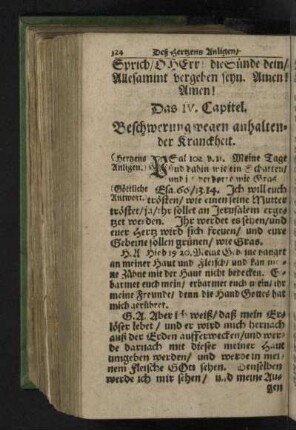 124 Deß Hertzens Anligen/
Sprich/ O HErr! die Sünde dein/
Allesammt vergeben seyn. Amen!
Amen!
Das IV. Capitel.
Beschwerung wegen anhalten-
der Kranckheit.
(Hertzens Psal 102. v. 12. Meine Tage
Anligen. sind dahin wie ein Schatten/
und ich verdorre wie Gras.
(Göttliche Esa. 66/13.14. Ich will euch
Antwort. trösten/ wie einen seine Mutter
tröstet/ ja/ ihr sollet an Jerusalem erge-
tzet werden. Ihr werdet es sehen/ und
euer Hertz wird sich freuen/ und eure
Gebeine sollen grünen/ wie Gras.
H. A. Hiob 19. 20. Meine Gebeine hanget
an meiner Haut und Fleisch/ und kan mei-
ne Zähne mit der Haut nicht bedecken. Er-
barmet euch mein/ erbarmet euch mein/ ihr
meine Freunde/ denn die Hand Gottes hat
mich gerühret.
G. A. Aber ich weiß/ daß mein Er-
löser lebet/ und er wird mich hernach
auß der Erden aufferwecken/ und wer-
de darnach mit dieser meiner Haut
umgeben werden/ und werde in mei-
nem Fleische GOtt sehen. Denselben
werde ich mir sehen/ und meine Au-
gen